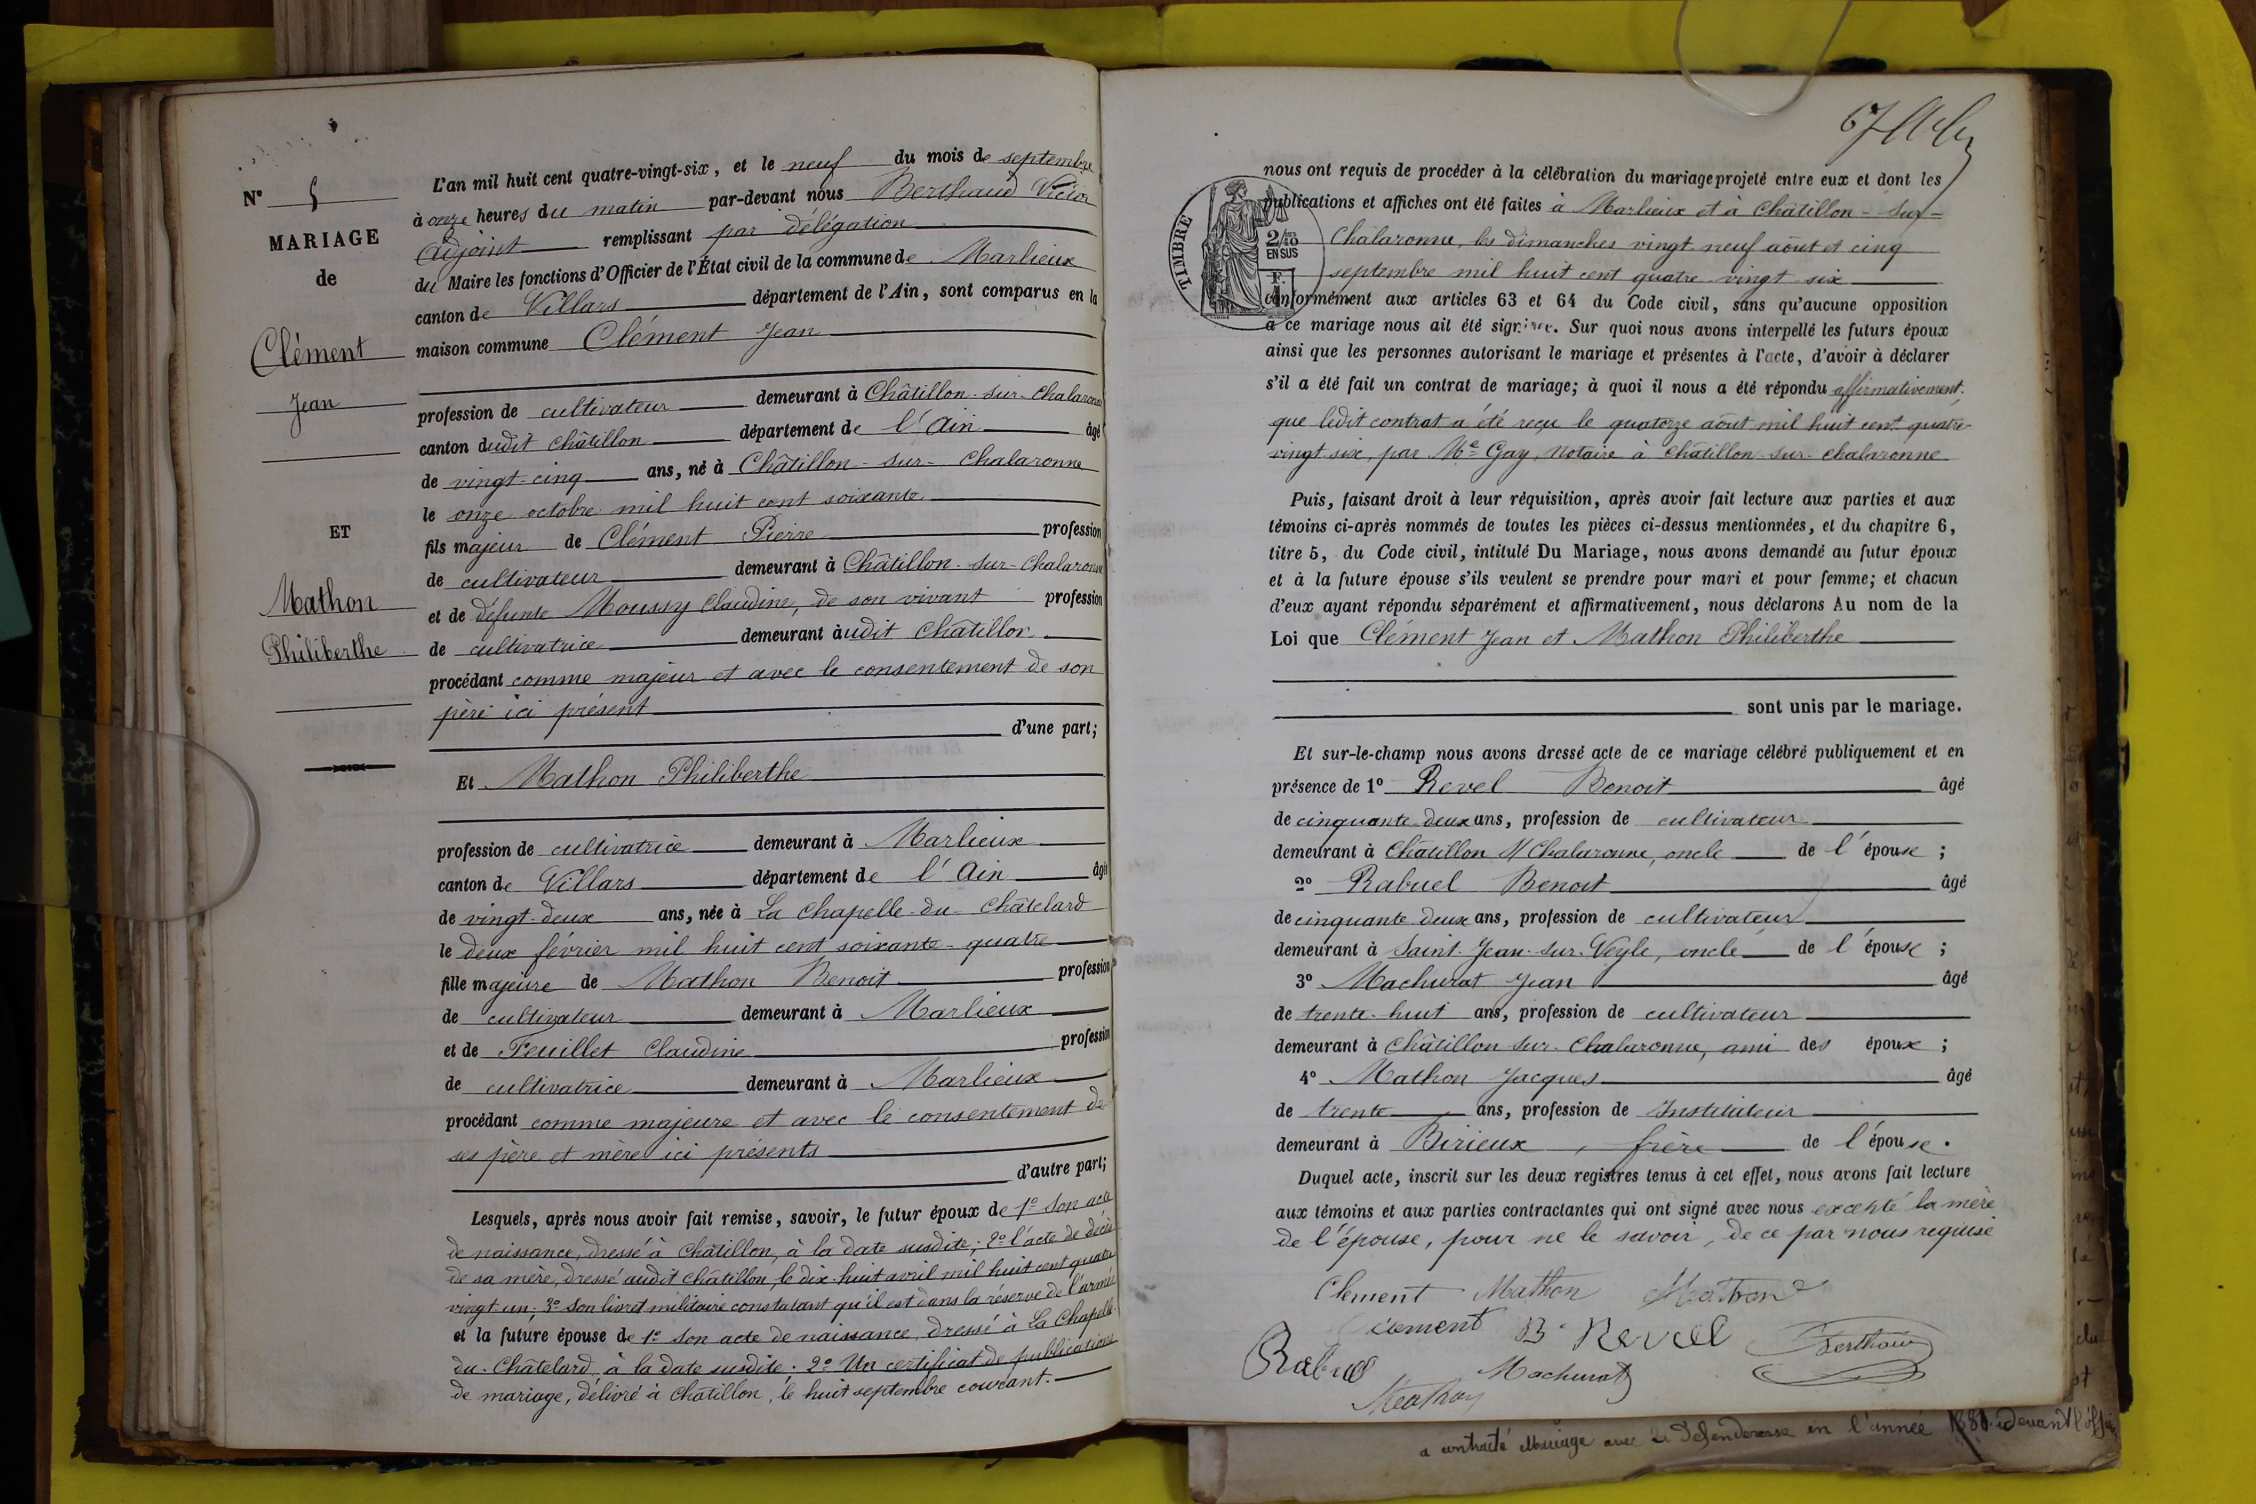 N° 5
MARIAGE
de
Clément
Jean
ET
Mathon
Philiberthe
L'an mil huit cent quatre-vingt-six, et le neuf du mois de septembre
à onze heures du matin par-devant nous Berthaud Victor
adjoint remplissant par délégation
du Maire les fonctions d'Officier de l'État civil de la commune de Marlieux
canton de Villars département de l'Ain, sont comparus en la
maison commune Clément Jean
profession de cultivateur demeurant à Châtillon-sur-Chalaronne
canton dudit Châtillon département de l'Ain âgé
de vingt-cinq ans, né à Châtillon-sur-Chalaronne
le onze octobre mil huit cent soixante
fils majeur de Clément Pierre profession
de cultivateur demeurant à Châtillon-sur-Chalaronne
et de défunte Moussy Claudine, de son vivant profession
de cultivatrice demeurant àudit Châtillon
procédant comme majeur et avec le consentement de son
père ici présent
d'une part;
Et Mathon Philiberthe
profession de cultivatrice demeurant à Marlieux
canton de Villars département de l'Ain âgée
de vingt-deux ans, née à La Chapelle-du-Châtelard
le deux février mil huit cent soixante-quatre
fille majeure de Mathon Benoit profession
de cultivateur demeurant à Marlieux
et de Feuillet Claudine profession
de cultivatrice demeurant à Marlieux
procédant comme majeure et avec le consentement de
ses père et mère ici présents
d'autre part;
Lesquels, après nous avoir fait remise, savoir, le futur époux de 1° Son acte
de naissance, dressé à Châtillon, à la date susdite; 2° l'acte de décès
de sa mère, dressé audit Châtillon, le dix-huit avril mil huit cent quatre
vingt un; 3° Son livret militaire constatant qu'il est dans la réserve de l'armée
et la future épouse de 1° Son acte de naissance, dressé à La Chapelle
du-Châtelard, à la date susdite; 2° Un certificat de publications
de mariage, délivré à Châtillon, le huit septembre courant.
67
TIMBRE
2/10
EN SUS
F.
nous ont requis de procéder à la célébration du mariage projeté entre eux et dont les
publications et affiches ont été faites à Marlieux et à Châtillon-sur-
Chalaronne, les dimanches vingt neuf août et cinq
septembre mil huit cent quatre vingt six
conformément aux articles 63 et 64 du Code civil, sans qu'aucune opposition
à ce mariage nous ait été signifiée. Sur quoi nous avons interpellé les futurs époux
ainsi que les personnes autorisant le mariage et présentes à l'acte, d'avoir à déclarer
s'il a été fait un contrat de mariage; à quoi il nous a été répondu affirmativement.
que ledit contrat a été reçu le quatorze août mil huit cent quatre-
vingt six, par Me Gay, Notaire à Châtillon-sur-Chalaronne
Puis, faisant droit à leur réquisition, après avoir fait lecture aux parties et aux
témoins ci-après nommés de toutes les pièces ci-dessus mentionnées, et du chapitre 6,
titre 5, du Code civil, intitulé Du Mariage, nous avons demandé au futur époux
et à la future épouse s'ils veulent se prendre pour mari et pour femme; et chacun
d'eux ayant répondu séparément et affirmativement, nous déclarons Au nom de la
Loi que Clément Jean et Mathon Philiberthe
sont unis par le mariage.
Et sur-le-champ nous avons dressé acte de ce mariage célébré publiquement et en
présence de 1° Revel Benoit âgé
de cinquante-deux ans, profession de cultivateur
demeurant à Châtillon s/ Chalaronne, oncle de l'épouse;
2° Rabuel Benoit âgé
de cinquante deux ans, profession de cultivateur
demeurant à Saint-Jean-sur-Veyle, oncle de l'épouse;
3° Machurat Jean âgé
de trente-huit ans, profession de cultivateur
demeurant à Châtillon-sur-Chalaronne, ami des époux;
4° Mathon Jacques âgé
de trente ans, profession de Instituteur
demeurant à Birieux, frère de l'épouse.
Duquel acte, inscrit sur les deux registres tenus à cet effet, nous avons fait lecture
aux témoins et aux parties contractantes qui ont signé avec nous excepté la mère
de l'épouse, pour ne le savoir, de ce par nous requise
Clement Mathon Mathon
Clement B. Revel Berthaud
Rabuel Machurat
Mathon
a contracté Mariage avec la Défenderesse en l'année 1881 devant l'offi